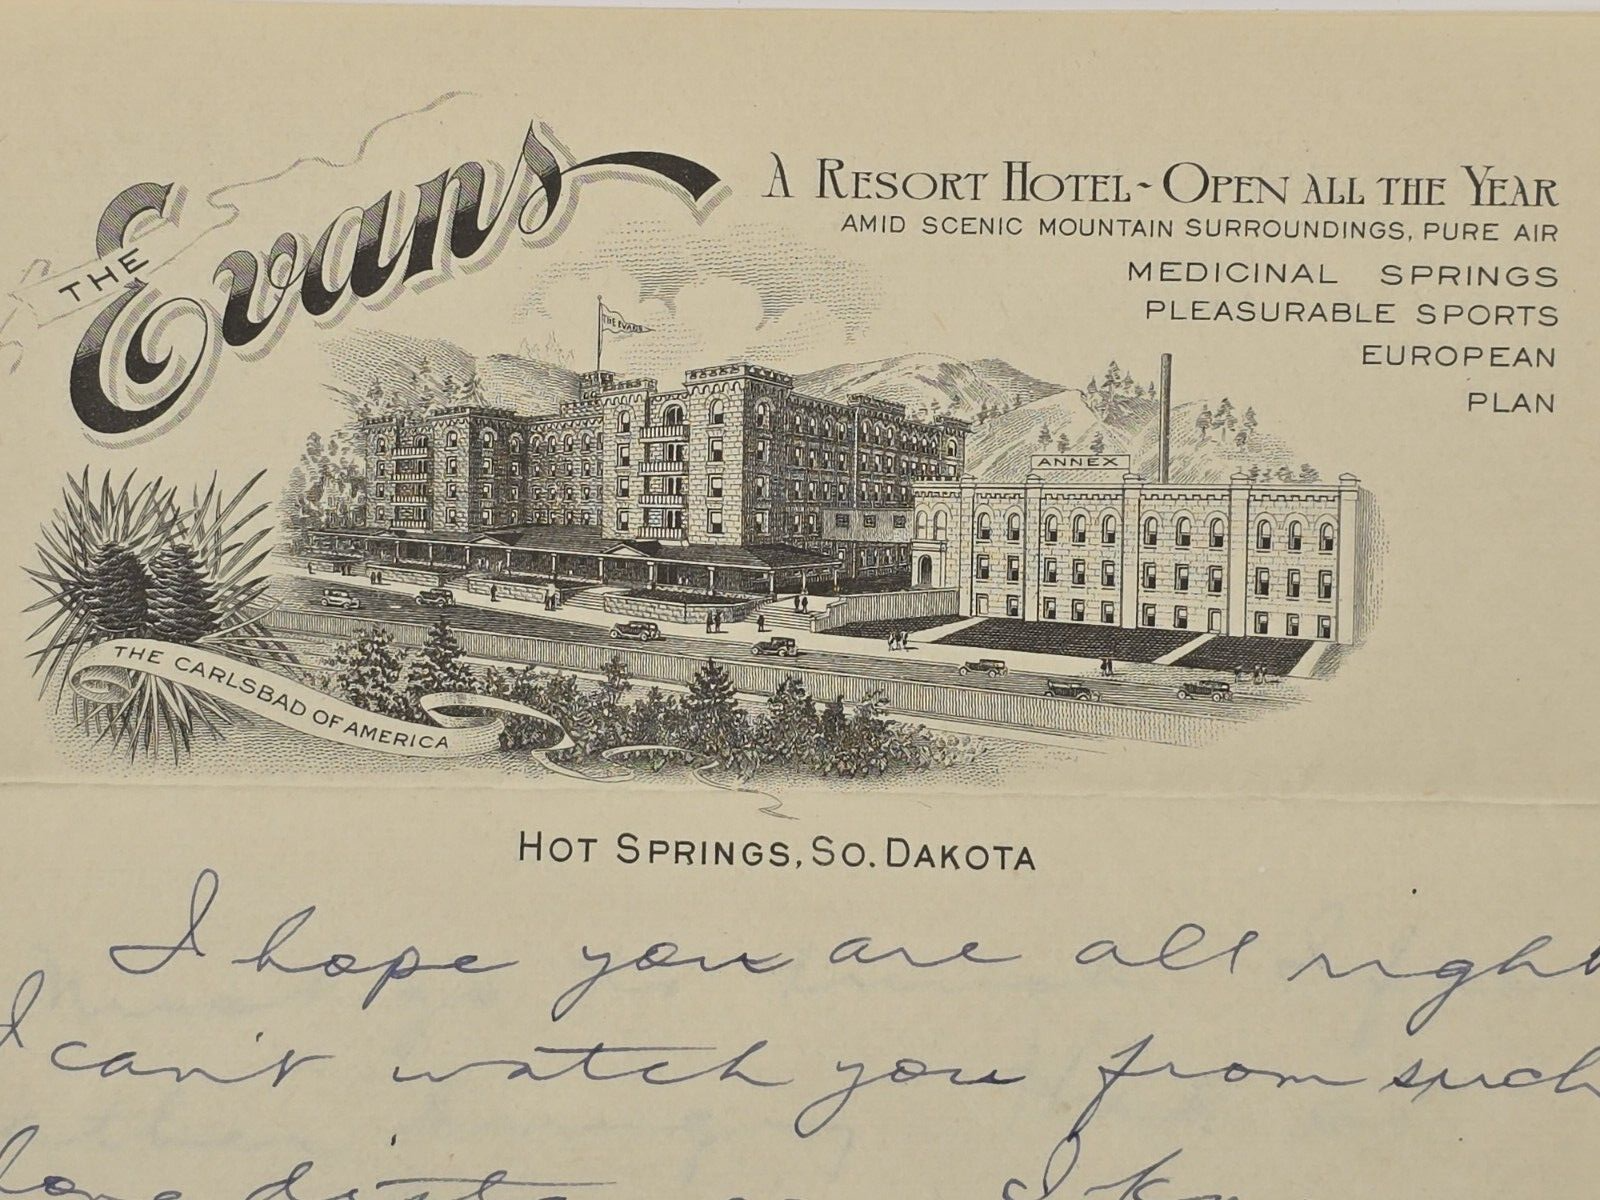 THE Evans
A RESORT HOTEL ~ OPEN ALL THE YEAR
AMID SCENIC MOUNTAIN SURROUNDINGS, PURE AIR
MEDICINAL SPRINGS
PLEASURABLE SPORTS
EUROPEAN
PLAN
THE EVANS
ANNEX
THE CARLSBAD OF AMERICA
HOT SPRINGS, SO. DAKOTA
I hope you are all right
I can't watch you from such
long